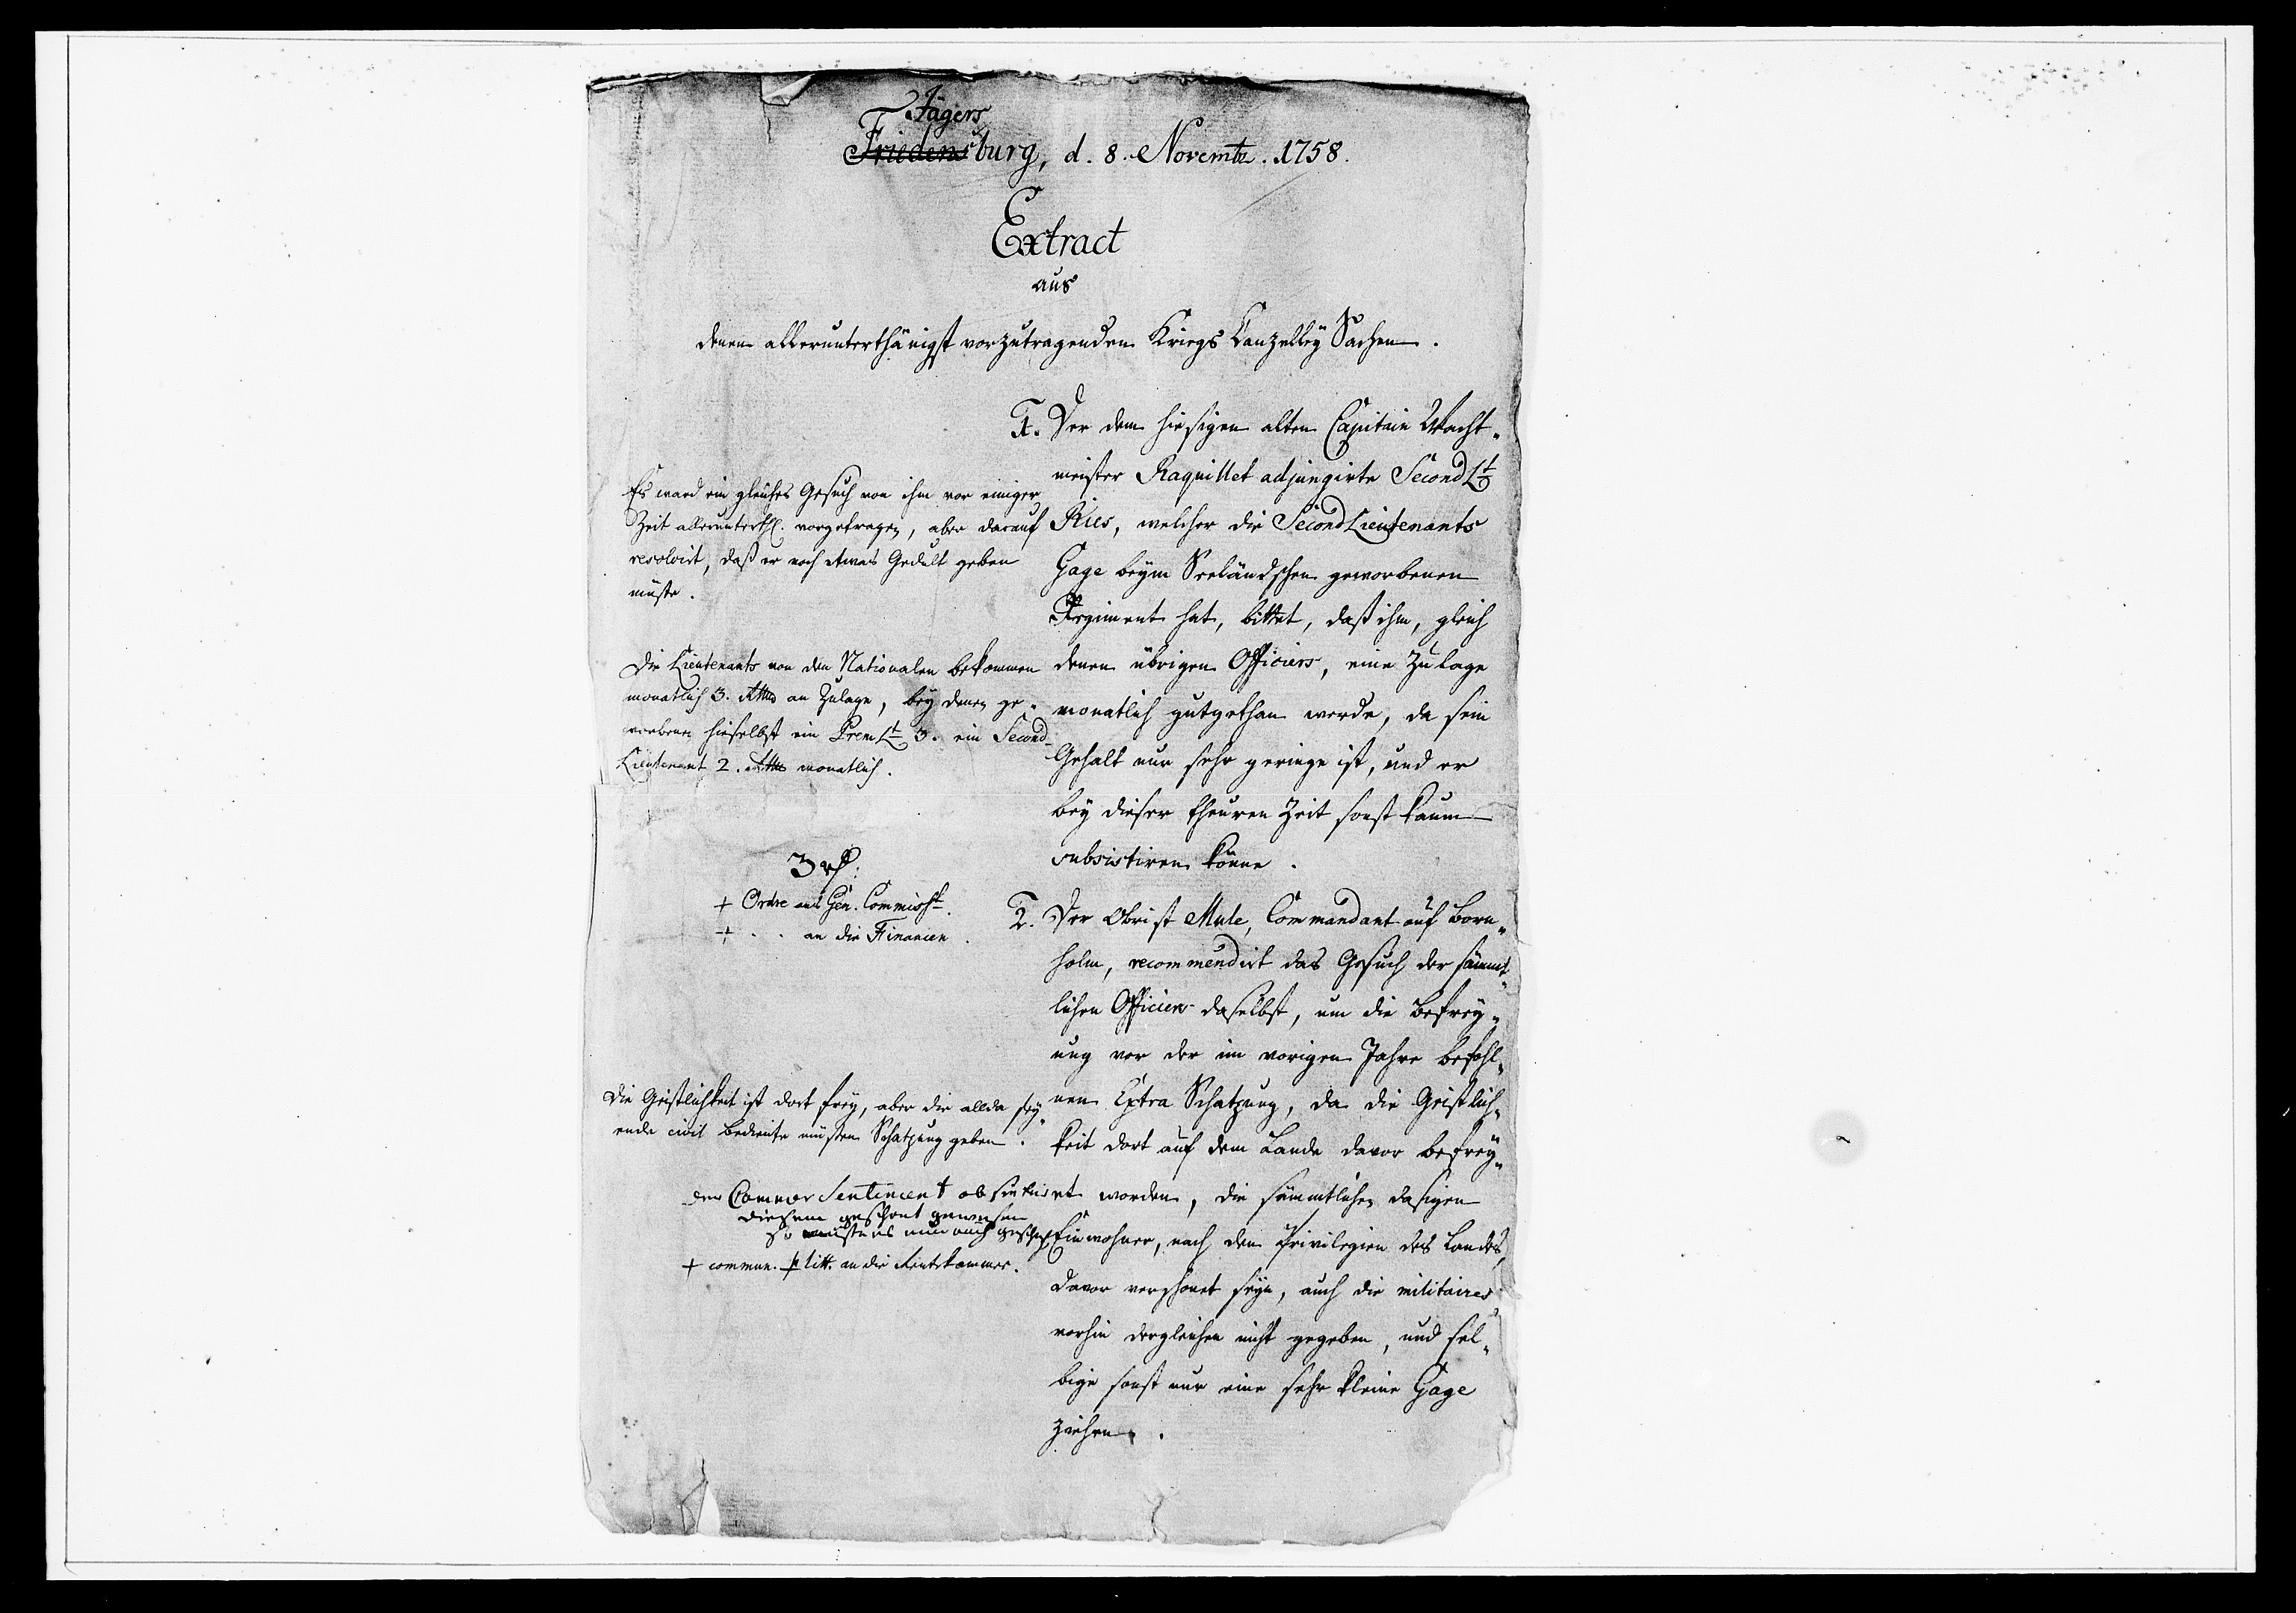 Jägers
Friedensburg, d. 8. Novembr. 1758.
Extract
aus
denen allerunterthänigst vorzutragenden Kriegs Canzelley Sachen.
1. Der dem hiesigen alten Capitain Wacht„
meister Raquillet adjungirte Second Lt
Ries, welcher die Second Lieutenants
Gage beym Seeländschen geworbenen
Regiment hat, bittet, daß ihm, gleich
denen übrigen Officiers, eine Zulage
monatlich gutgethan werde, da sein
Gehalt nur sehr geringe ist, und er
bey dieser theuren Zeit sonst kaum
subsistiren könne.
Es ward ein gleiches Gesuch von ihm vor einiger
Zeit allerunterth. vorgetragen, aber darauf
resolvirt, daß er noch etwas Gedult geben
müste.
Die Lieutenants von den Nationalen bekommen
monatlich 3. Rthlr an Zulage, bey denen ge„
worbenen hieselbst ein Prem Lt 3. ein Second
Lieutenant 2. Rthlr monatlich.
3 rf:
+ Ordre ans Gen. Commisst.
+ . . an die Financen.
2. Der Obrist Mule, Commandant auf Born„
holm, recommendirt das Gesuch der sämmt„
lichen Officiers daselbst, um die Befrey„
ung vor der im vorigen Jahre befohl„
nen Extra Schatzung, da die Geistlich„
keit dort auf dem Lande davor befrey„
et worden, die sämmtlichen dasigen
Einwohner, nach den Privilegien des Landes,
davor verschonet seyn, auch die militaires
vorhin dergleichen nicht gegeben, und sel„
bige sonst nur eine sehr kleine Gage
ziehen.
Die Geistlichkeit ist dort frey, aber die allda sey„
ende civil Bediente müsten Schatzung geben.
der Cammer Sentiment ob sie hier
diesem geschont gewesen
so müste es nun auch geschehen
+ commun. litt. an die Rentekammer.